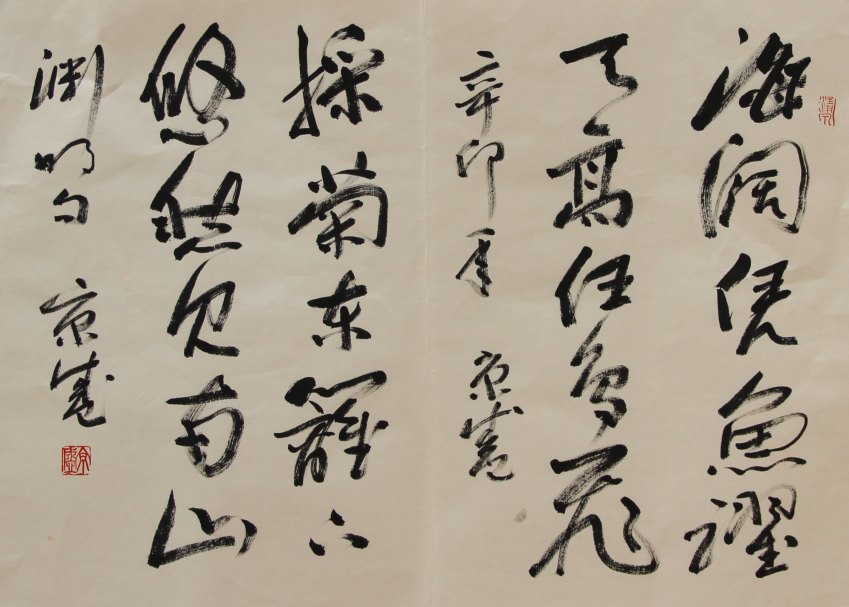 海阔凭鱼躍
天高任鸟飛
辛卯年 京
採菊东籬下
悠然见南山
渊明句 京